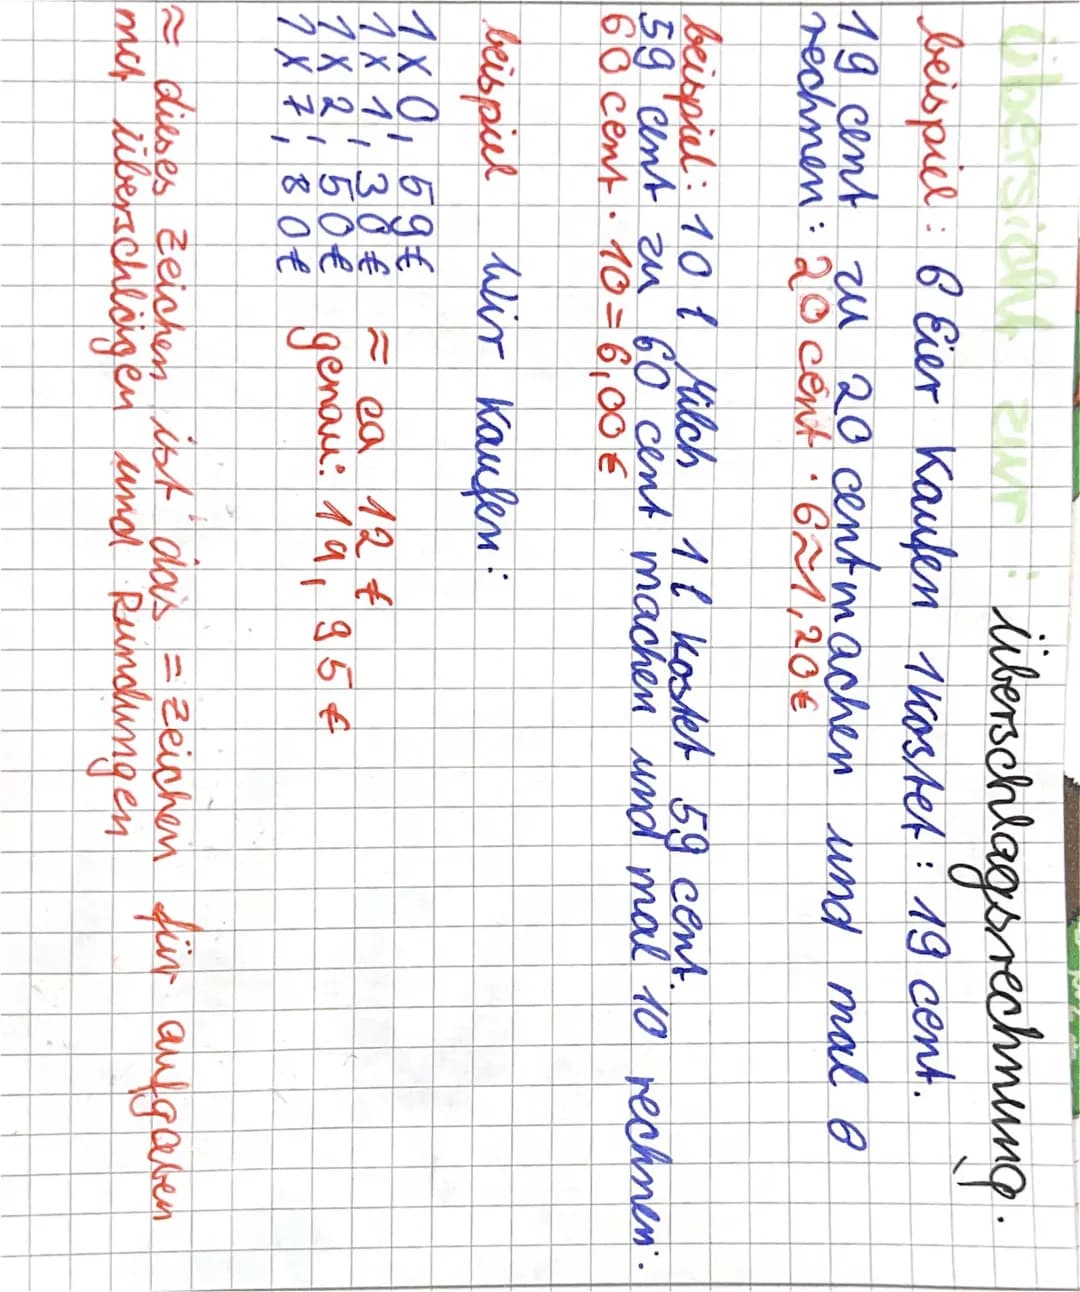 übersicht zur : Überschlagsrechnung.
beispiel: 6 Eier Kaufen 1Kostet: 19 cent.
19 cent zu 20 cent machen und mal 6
rechnen: 20 cent · 6≈1,20€
beispiel: 10 l Milch 1l kostet 59 cent.
59 cent zu 60 cent machen und mal 10 rechnen.
60 cent · 10=6,00€
beispiel Wir Kaufen:
1x 0,59€
1x 1,30€ ≈ ca 12€
1x 2,50€ genau: 14,95€
1x 7,80€
≈ dieses zeichen ist das = zeichen für aufgaben
mit überschlägen und Rundungen